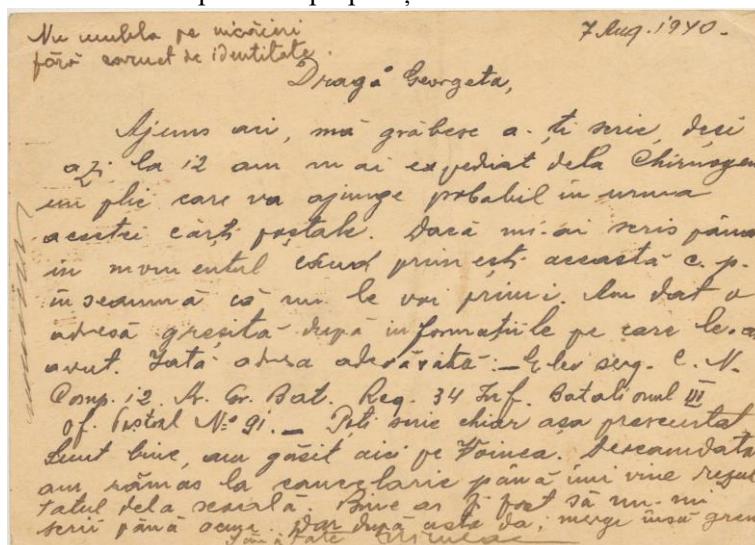 Nu umbla pe nicăieri
fără carnet de identitate.
7 Aug. 1940.
Dragă Georgeta,
Ajuns aci, mă grăbesc a-ți scrie, deși
azi la 12 am mai expediat dela
un plic care va ajunge probabil în urma
acestei cărți poștale. Dacă mi-ai scris până
în momentul când primești această c. p.
înseamnă că nu le voi primi. Am dat o
adresă greșită după informațiile pe care le-am
avut. Iată adresa adevărată: — Elev serg. C. N.
Comp. 12. A. Gr. Bat. Reg. 34 Inf. Batalionul III
Of. Poștal No 91. — Poți scrie chiar așa prescurtat
Sunt bine, am găsit aici pe Voinea. Deocamdată
am rămas la cancelarie până îmi vine rezul
tatul dela școală. Bine ar fi fost să nu-mi
scrii până acum. Dar după asta da; merge însă greu